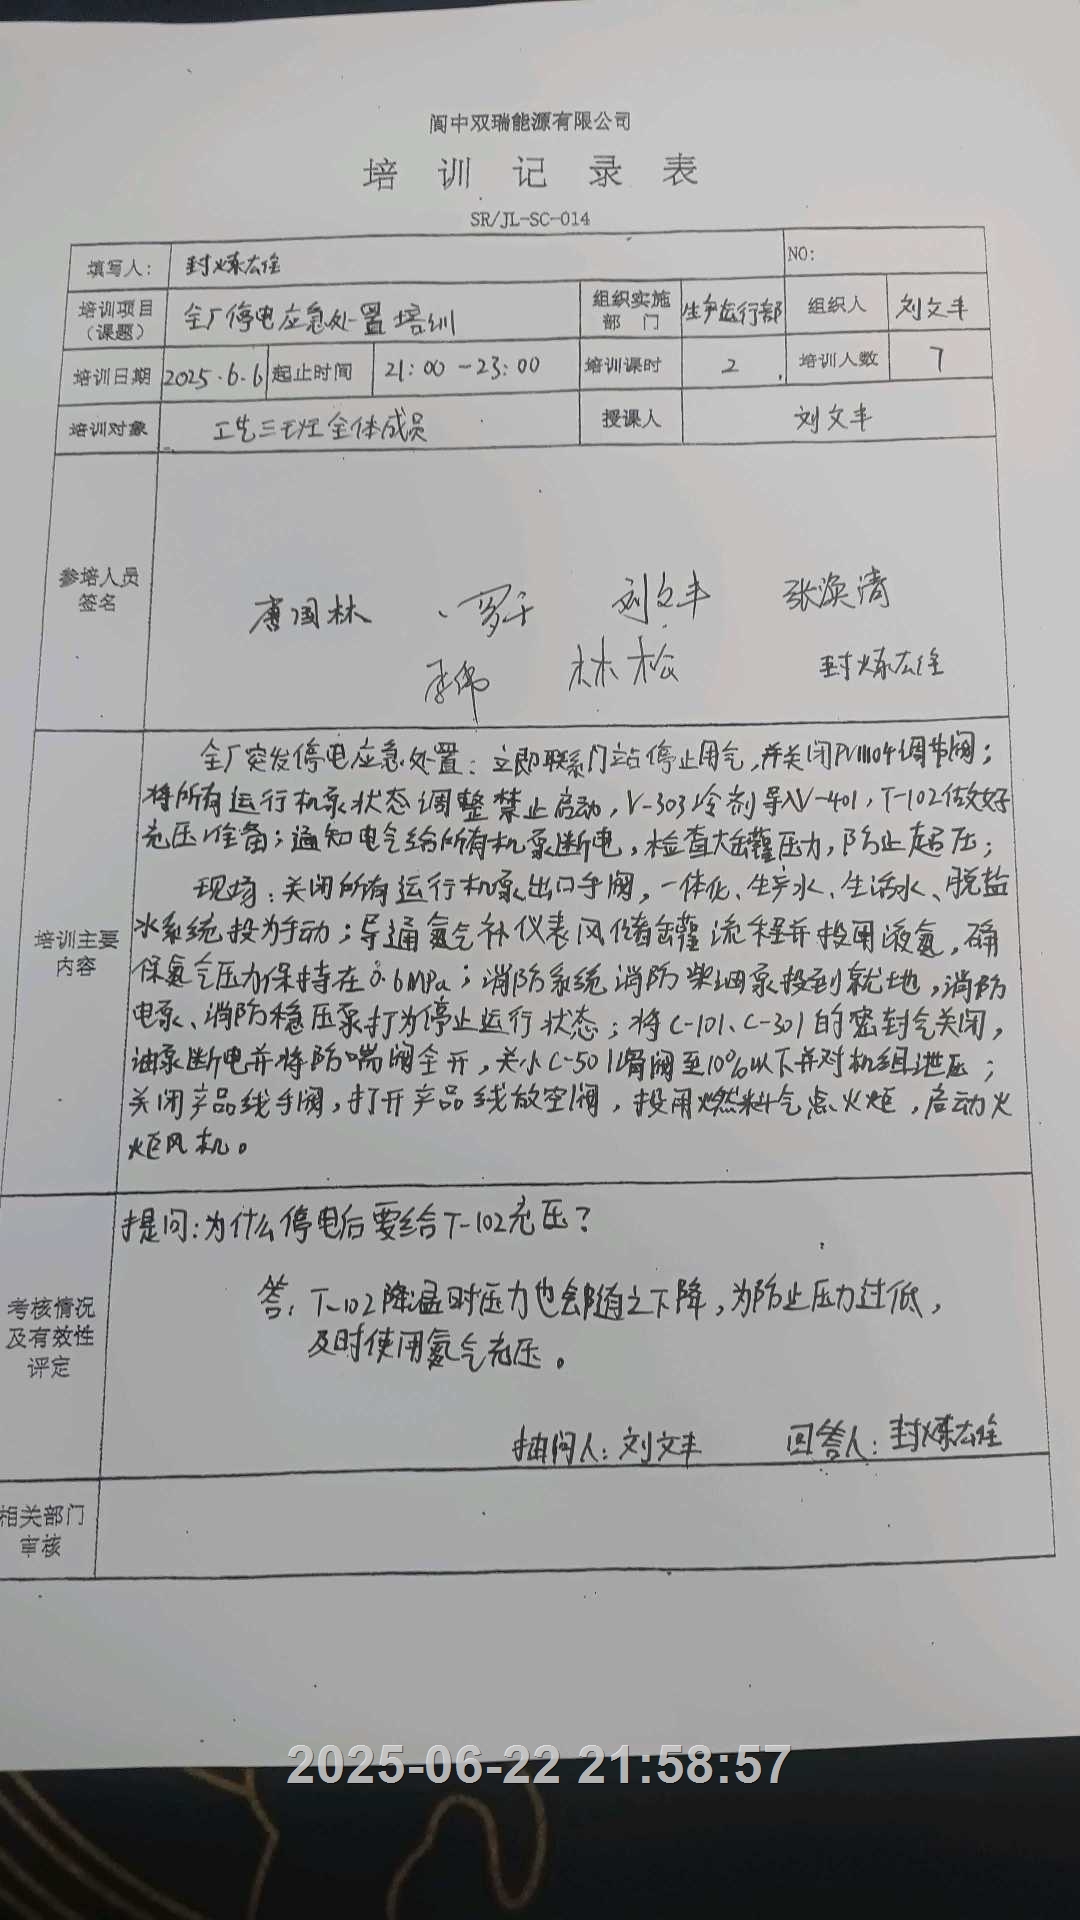 阆中双瑞能源有限公司
培训记录表
SR/JL-SC-014
填写人: 封炼云佳 NO:
培训项目(课题) 全厂停电应急处置培训 组织实施部门 生产运行部 组织人 刘文丰
培训日期 2025.6.6 起止时间 21:00-23:00 培训课时 2 培训人数 7
培训对象 工艺三班全体成员 授课人 刘文丰
参培人员签名
唐国林 罗千 刘文丰 张涣清
李伟 林松 封炼
培训主要内容
全厂突发停电应急处置：立即联系门站停止用气，并关闭PV11104调节阀；
将所有运行机泵状态调整禁止启动，V-303冷剂导入V-401，T-102做好
充压准备；通知电气给所有机泵断电，检查大罐压力，防止超压；
现场：关闭所有运行机泵出口手阀，一体化、生产水、生活水、脱盐
水系统投为手动；导通氮气补仪表风储罐流程并投用液氮，确
保氮气压力保持在0.6MPa；消防系统消防柴油泵投到就地，消防
电泵、消防稳压泵打为停止运行状态；将C-101、C-301的密封气关闭，
油泵断电并将防喘阀全开，关小C-501滑阀至10%以下并对机组泄压；
关闭产品线手阀，打开产品线放空阀，投用燃料气点火炬，启动火
炬风机。
考核情况及有效性评定
提问：为什么停电后要给T-102充压？
答：T-102降温时压力也会随之下降，为防止压力过低，
及时使用氮气充压。
抽问人：刘文丰 回答人：封炼
相关部门审核
2025-06-22 21:58:57